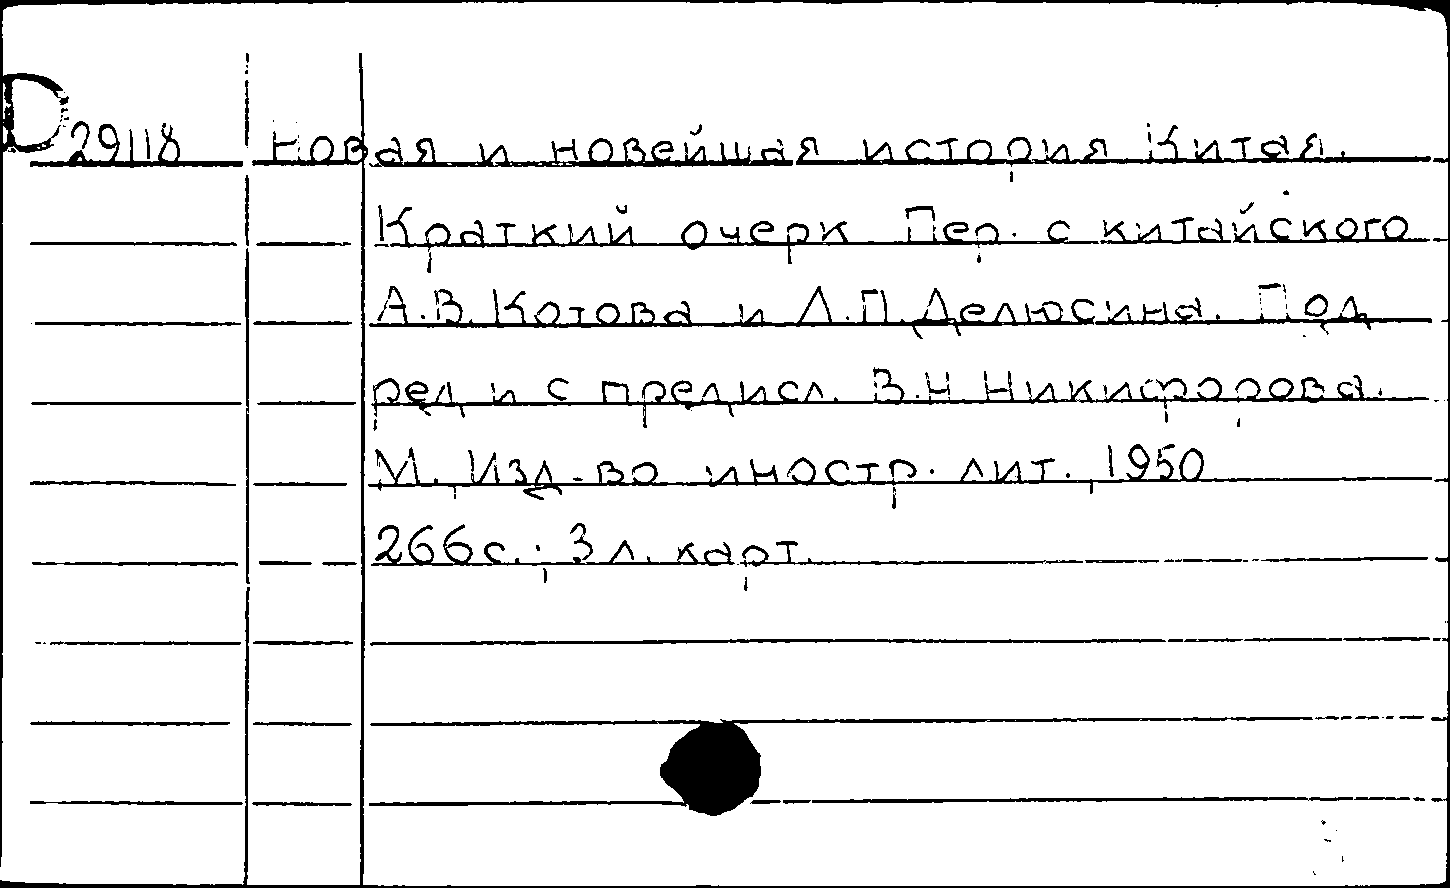 D 29118 Новая и новейшая история Китая.
Краткий очерк. Пер. с китайского
А.В. Котова и Л.П. Делюсина. Под
ред и с предисл. В.Н. Никифорова.
М., Изд-во иностр. лит., 1950
266с.; 3 л. карт.